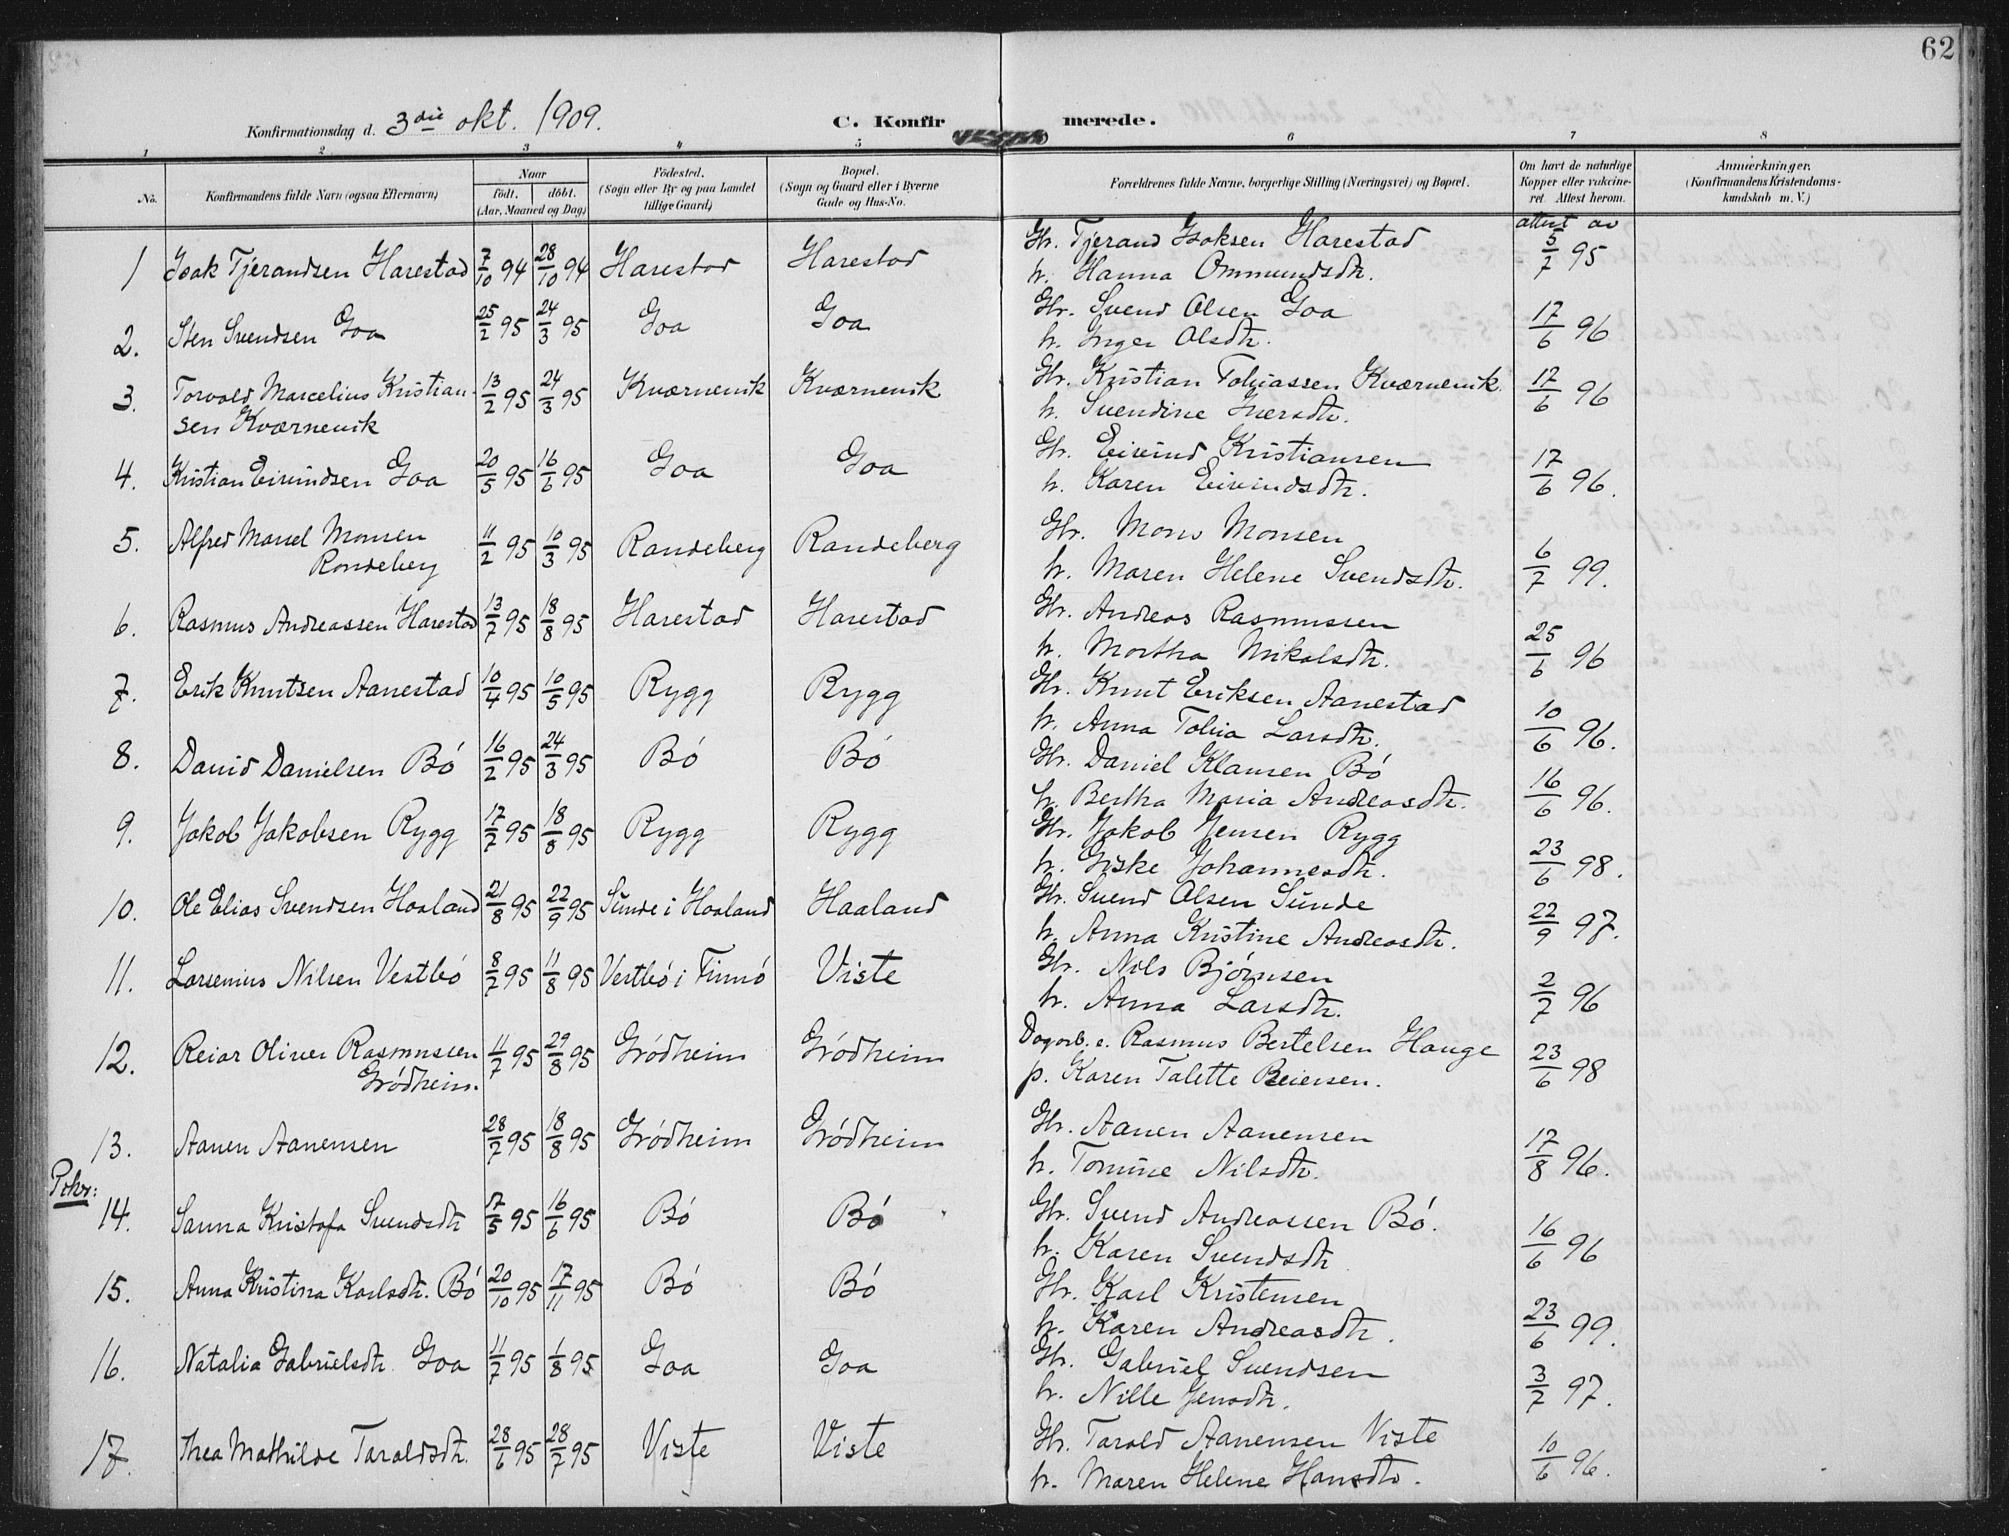 62
Konfirmationsdag d. 3die okt. 1909.
C. Konfirmerede.
1 2 3 4 5 6 7 8
No. Konfirmandens fulde Navn (ogsaa Efternavn) Naar Födt. döbt. (Aar, Maaned og Dag) Födested. (Sogn eller By og paa Landet tillige Gaard) Bopæl. (Sogn og Gaard eller i Byerne Gade og Hus-No. Forældrenes fulde Navne, borgerlige Stilling (Næringsvei) og Bopæl. Om havt de naturlige Kopper eller vakcineret. Attest herom. Anmærkninger. (Konfirmandens Kristendomskundskab m. V.)
attest av
1 Isak Tjerandsen Harestad 7/10 94 28/10 94 Harestad Harestad Gbr. Tjerand Isaksen Harestad 5/7 95
h. Hanna Ommundsdtr.
2. Sten Svendsen Goa 25/2 95 24/3 95 Goa Goa Gbr. Svend Olsen Goa 17/6 96
h. Inger Olsdtr.
3. Torvald Marcelius Kristian- 13/2 95 24/3 95 Kværnevik Kværnevik Gbr. Kristian Tobiassen Kværnevik 17/6 96
sen Kværnevik h. Svendine Iversdtr.
4. Kristian Eivindsen Goa 20/5 95 16/6 95 Goa Goa Gbr. Eivind Kristiansen 17/6 96.
h. Karen Eivindsdtr.
5. Alfred Marsel Monsen 11/2 95 10/3 95 Randeberg Randeberg Gbr. Mons Monsen 6/7 99.
Randeberg h. Maren Helene Svendsdtr.
6. Rasmus Andreassen Harestad 13/7 95 18/8 95 Harestad Harestad Gbr. Andreas Rasmussen 25/6 96
h. Martha Nikolsdtr.
7. Erik Knutsen Aanestad 10/4 95 10/5 95 Rygg Rygg Gbr. Knut Eriksen Aanestad 10/6 96.
h. Anna Tobia Larsdtr.
8. David Danielsen Bó 16/2 95 24/3 95 Bó Bó Gbr. Daniel Klausen Bó 16/6 96.
h. Bertha Maria Andreasdtr.
9. Jakob Jakobsen Rygg 17/7 95 18/8 95 Rygg Rygg Gbr. Jakob Jensen Rygg 23/6 98.
h. Giske Johannesdtr.
10. Ole Elias Svendsen Haaland 21/8 95 22/9 95 Sunde i Haaland Haaland Gbr. Svend Olsen Sunde 22/9 97.
h. Anna Kristine Andreasdtr.
11. Larsenius Nilsen Vestbó 8/7 95 11/8 95 Vestbó i Finnó Viste Gbr. Nils Bjórnsen 2/7 96
h. Anna Larsdtr.
12. Reiar Oliver Rasmussen 11/7 95 29/8 95 Gródheim Gródheim Dagarb. e. Rasmus Bertelsen Hauge 23/6 98
Gródheim. p. Karen Talette Reiersen.
13. Aanen Aanensen 28/7 95 18/8 95 Gródheim Gródheim Gbr. Aanen Aanensen 17/8 96.
h. Tomine Nilsdtr.
Pikr:
14. Sanna Kristofa Svendsdtr 17/5 95 16/6 95 Bó Bó Gbr. Svend Andreassen Bó. 16/6 96
h. Karen Svendsdtr
15. Anna Kristina Karlsdtr. Bó 20/10 95 17/11 95 Bó Bó Gbr. Karl Kristensen 23/6 99.
h. Karen Andreasdtr.
16. Natalia Gabrielsdtr. Goa 11/7 95 1/8 95 Goa Goa Gbr. Gabriel Svendsen 3/7 97.
h. Nille Jensdtr.
17. Thea Mathilde Taraldsdtr. 28/6 95 28/7 95 Viste Viste Gbr. Tarald Aanensen Viste 10/6 96.
h. Maren Helene Hansdtr.